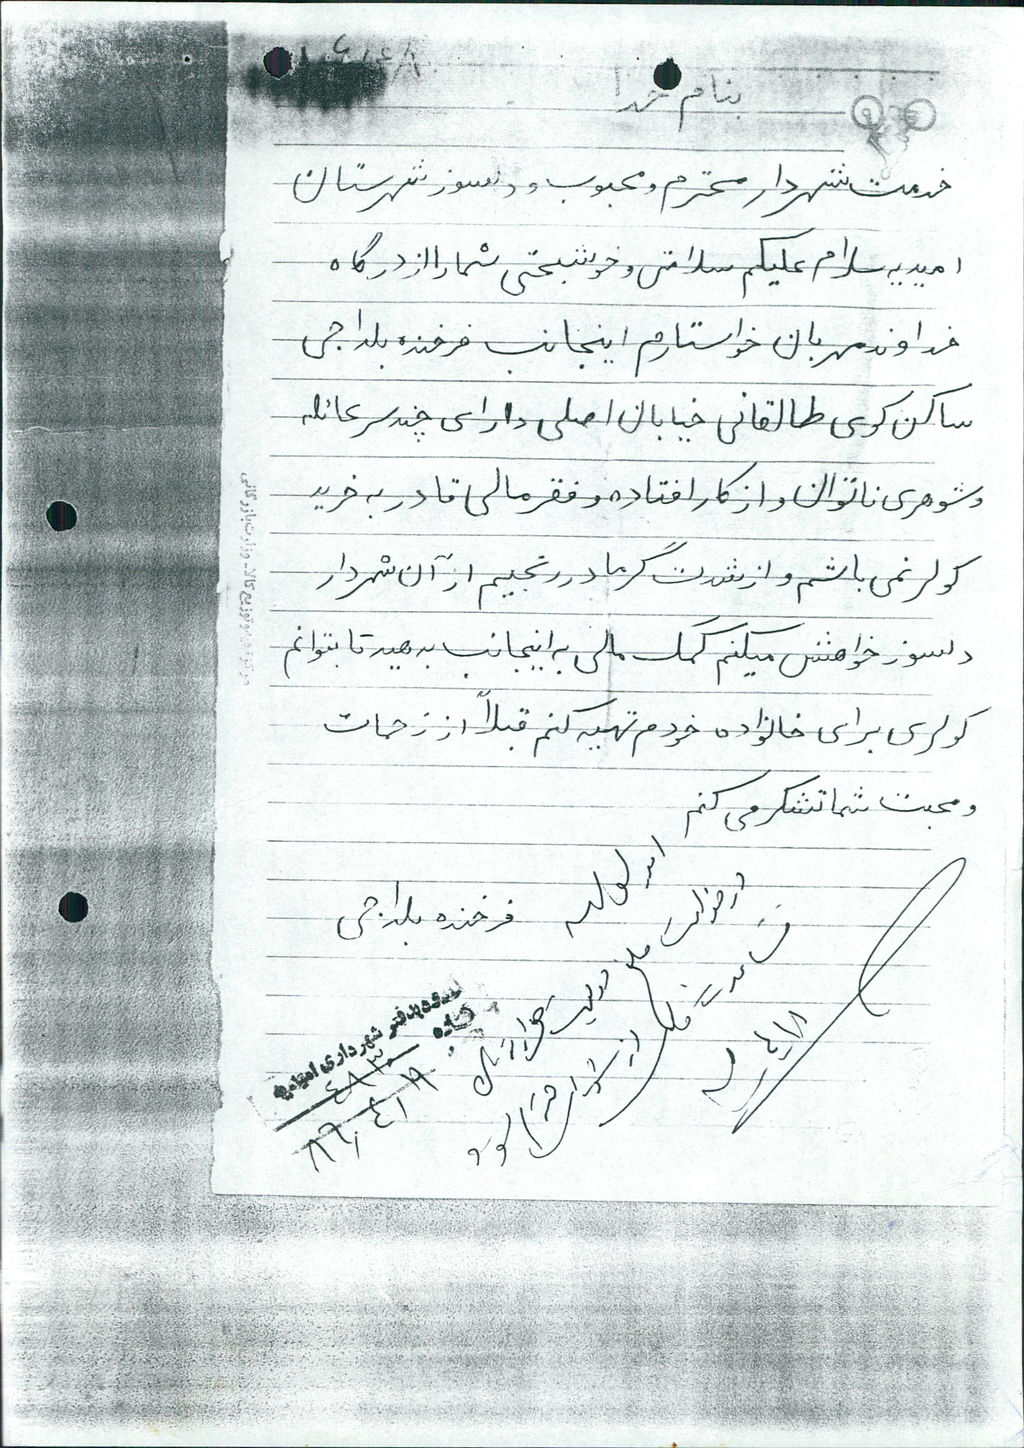 بنام خدا
خدمت شهردار محترم و محبوب و دلسوز شهرستان
امیدیه سلام علیکم سلامتی و خوشبختی شما را از درگاه
خداوند مهربان خواستارم اینجانب فرخنده بلداجی
ساکن کوی طالقانی خیابان اصلی دارای چند سر عائله
و شوهری ناتوان و از کار افتاده و فقر مالی قادر به خرید
کولر نمی باشم و از شدت گرما در رنجیم از آن شهردار
دلسوز خواهش میکنم کمک مالی به اینجانب بدهید تا بتوانم
کولری برای خانواده خودم تهیه کنم قبلاً از زحمات
و محبت شما تشکر می کنم
فرخنده بلداجی
دفتر شهرداری امیدیه
شماره ۴۸۳۰
۸۶/۴/۱۹